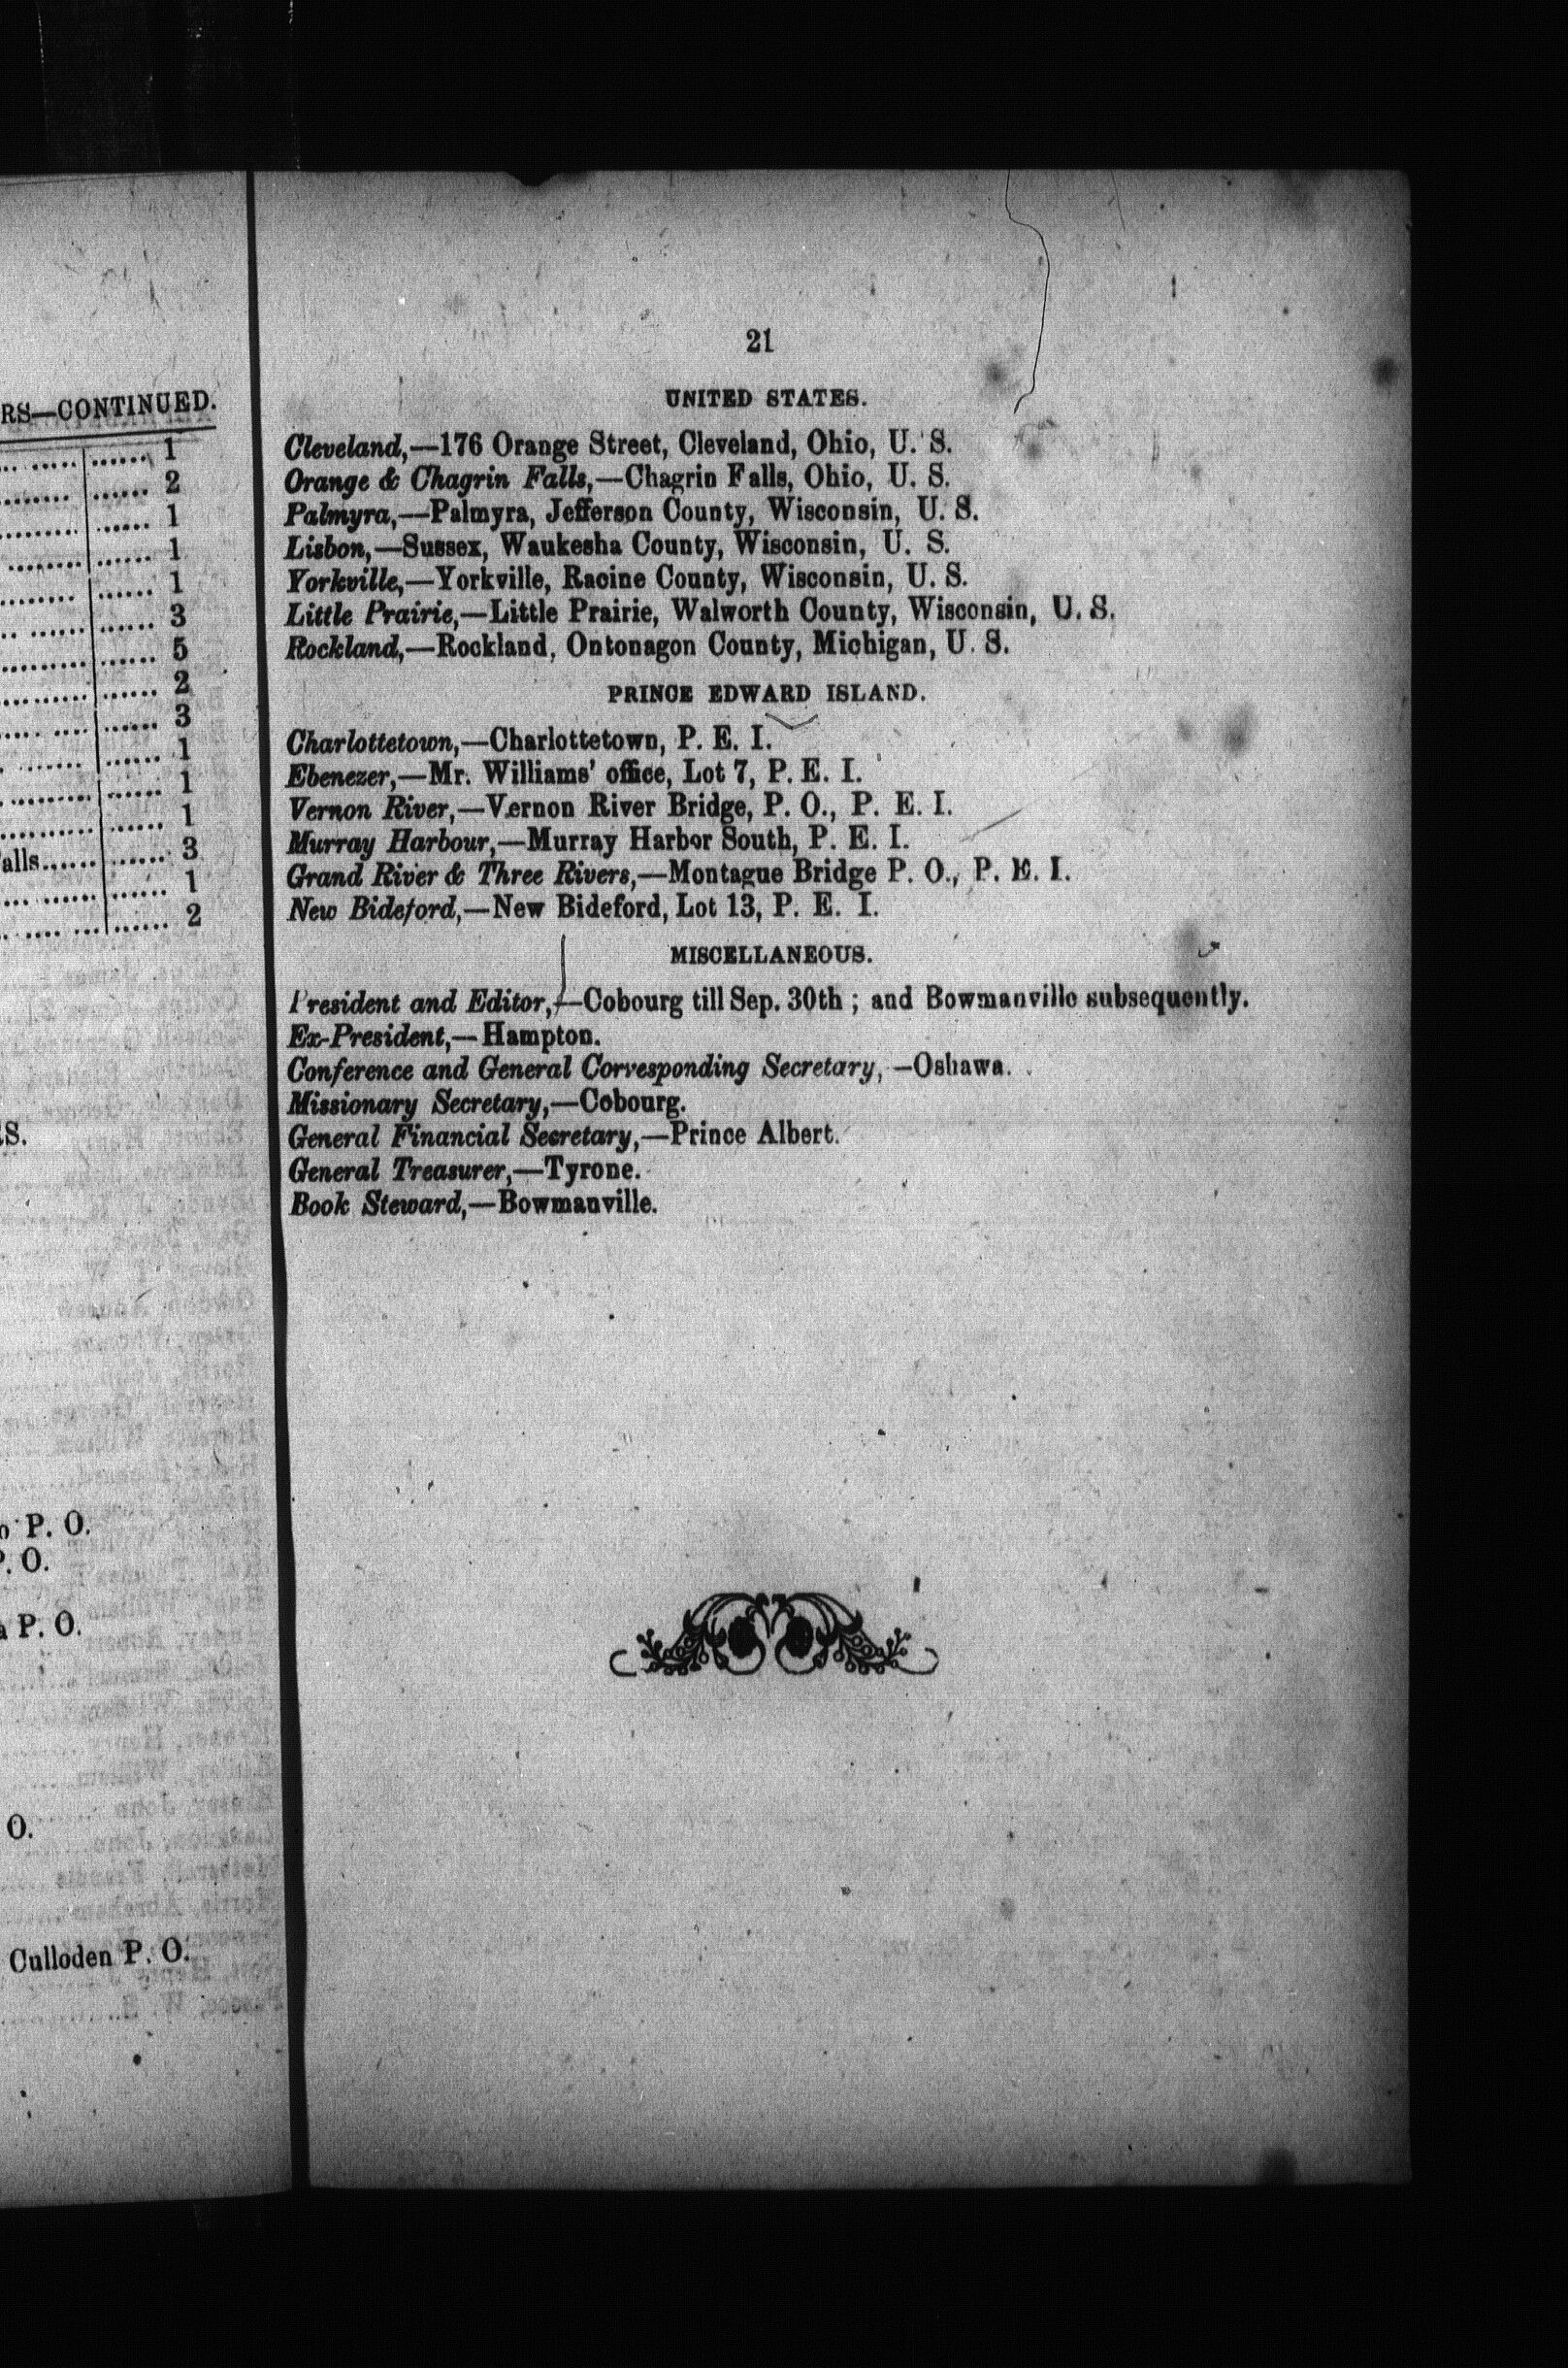 RS—CONTINUED.
...... 1
...... 2
...... 1
...... 1
...... 1
...... 3
...... 5
...... 2
3
...... 1
...... 1
...... 1
alls............ 3
...... 1
...... 2
S.
P. O.
P. O.
P. O.
O.
Culloden P. O.
21
UNITED STATES.
Cleveland,—176 Orange Street, Cleveland, Ohio, U. S.
Orange & Chagrin Falls,—Chagrin Falls, Ohio, U. S.
Palmyra,—Palmyra, Jefferson County, Wisconsin, U. S.
Lisbon,—Sussex, Waukesha County, Wisconsin, U. S.
Yorkville,—Yorkville, Racine County, Wisconsin, U. S.
Little Prairie,—Little Prairie, Walworth County, Wisconsin, U. S.
Rockland,—Rockland, Ontonagon County, Michigan, U. S.
PRINCE EDWARD ISLAND.
Charlottetown,—Charlottetown, P. E. I.
Ebenezer,—Mr. Williams' office, Lot 7, P. E. I.
Vernon River,—Vernon River Bridge, P. O., P. E. I.
Murray Harbour,—Murray Harbor South, P. E. I.
Grand River & Three Rivers,—Montague Bridge P. O., P. E. I.
New Bideford,—New Bideford, Lot 13, P. E. I.
MISCELLANEOUS.
President and Editor,—Cobourg till Sep. 30th ; and Bowmanville subsequently.
Ex-President,—Hampton.
Conference and General Corresponding Secretary,—Oshawa.
Missionary Secretary,—Cobourg.
General Financial Secretary,—Prince Albert.
General Treasurer,—Tyrone.
Book Steward,—Bowmanville.